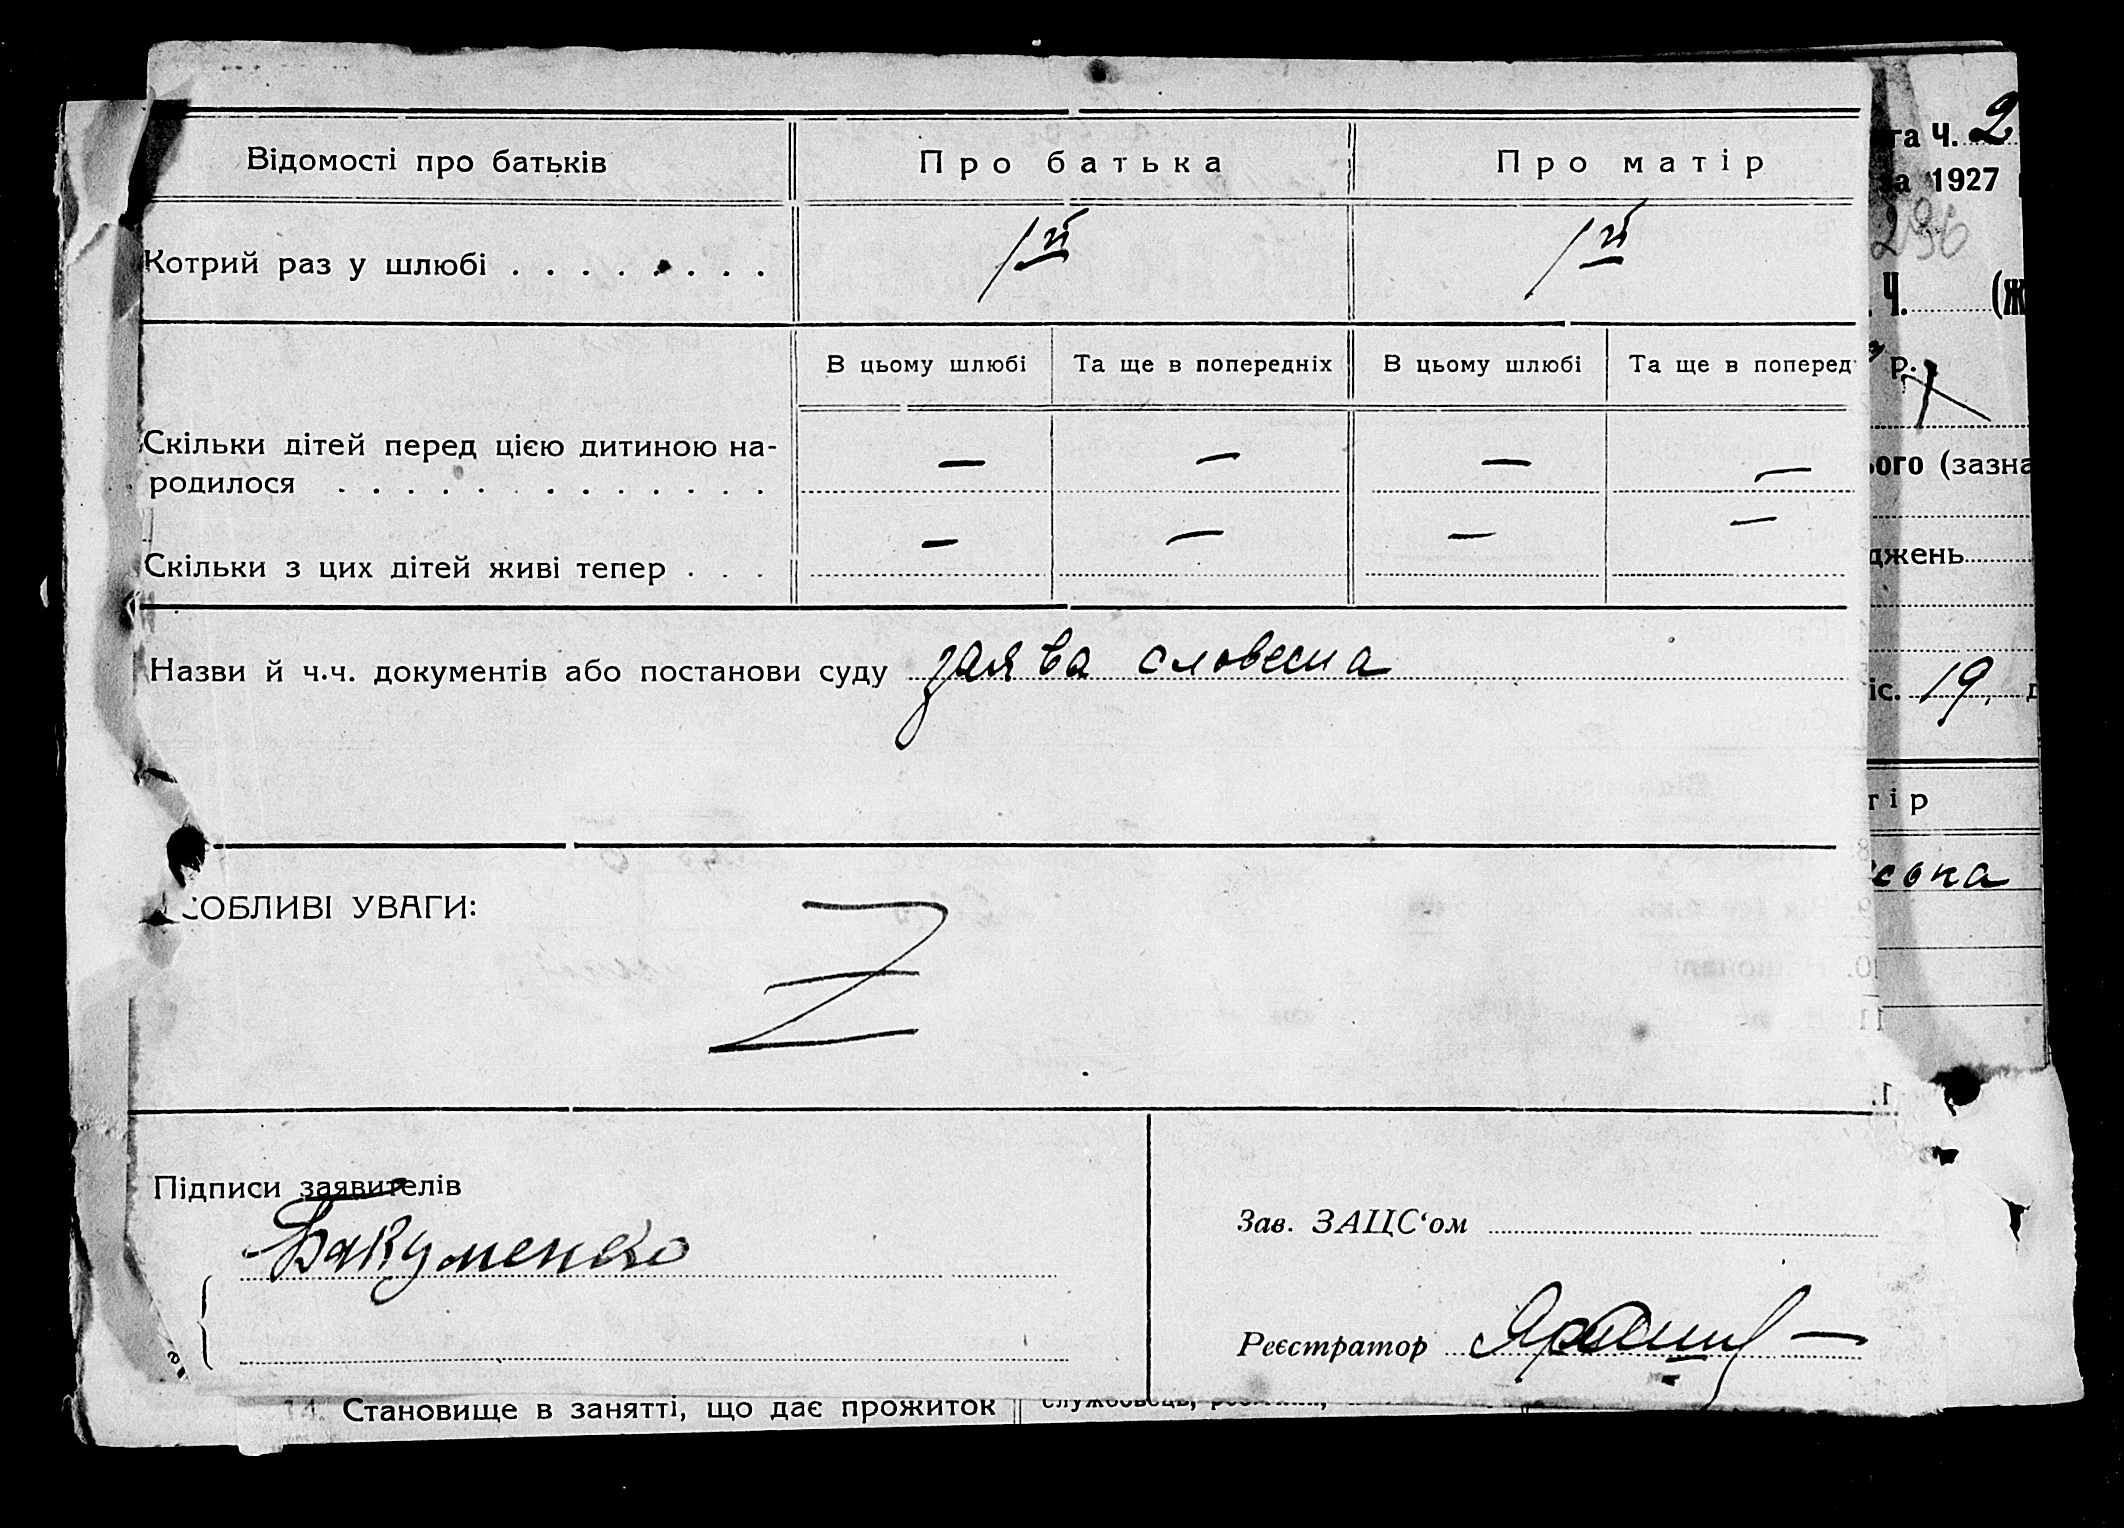 Відомості про батьків Про батька Про матір
Котрий раз у шлюбі . . . . . . . . 1й 1й
В цьому шлюбі Та ще в попередніх В цьому шлюбі Та ще в поперед
Скільки дітей перед цією дитиною на-
родилося . . . . . . . . . . . . . — — — —
Скільки з цих дітей живі тепер . . . — — — —
Назви й ч.ч. документів або постанови суду заява словесна
СОБЛИВІ УВАГИ:
Z
Підписи заявителів
Бакуменко
Зав. ЗАЦС‘ом
Реєстратор
14. Становище в занятті, що дає прожиток
га Ч. 2
за 1927
296
Ч. (Ж
р.
ього (зазна
джень
іс. 19,
тір
ська